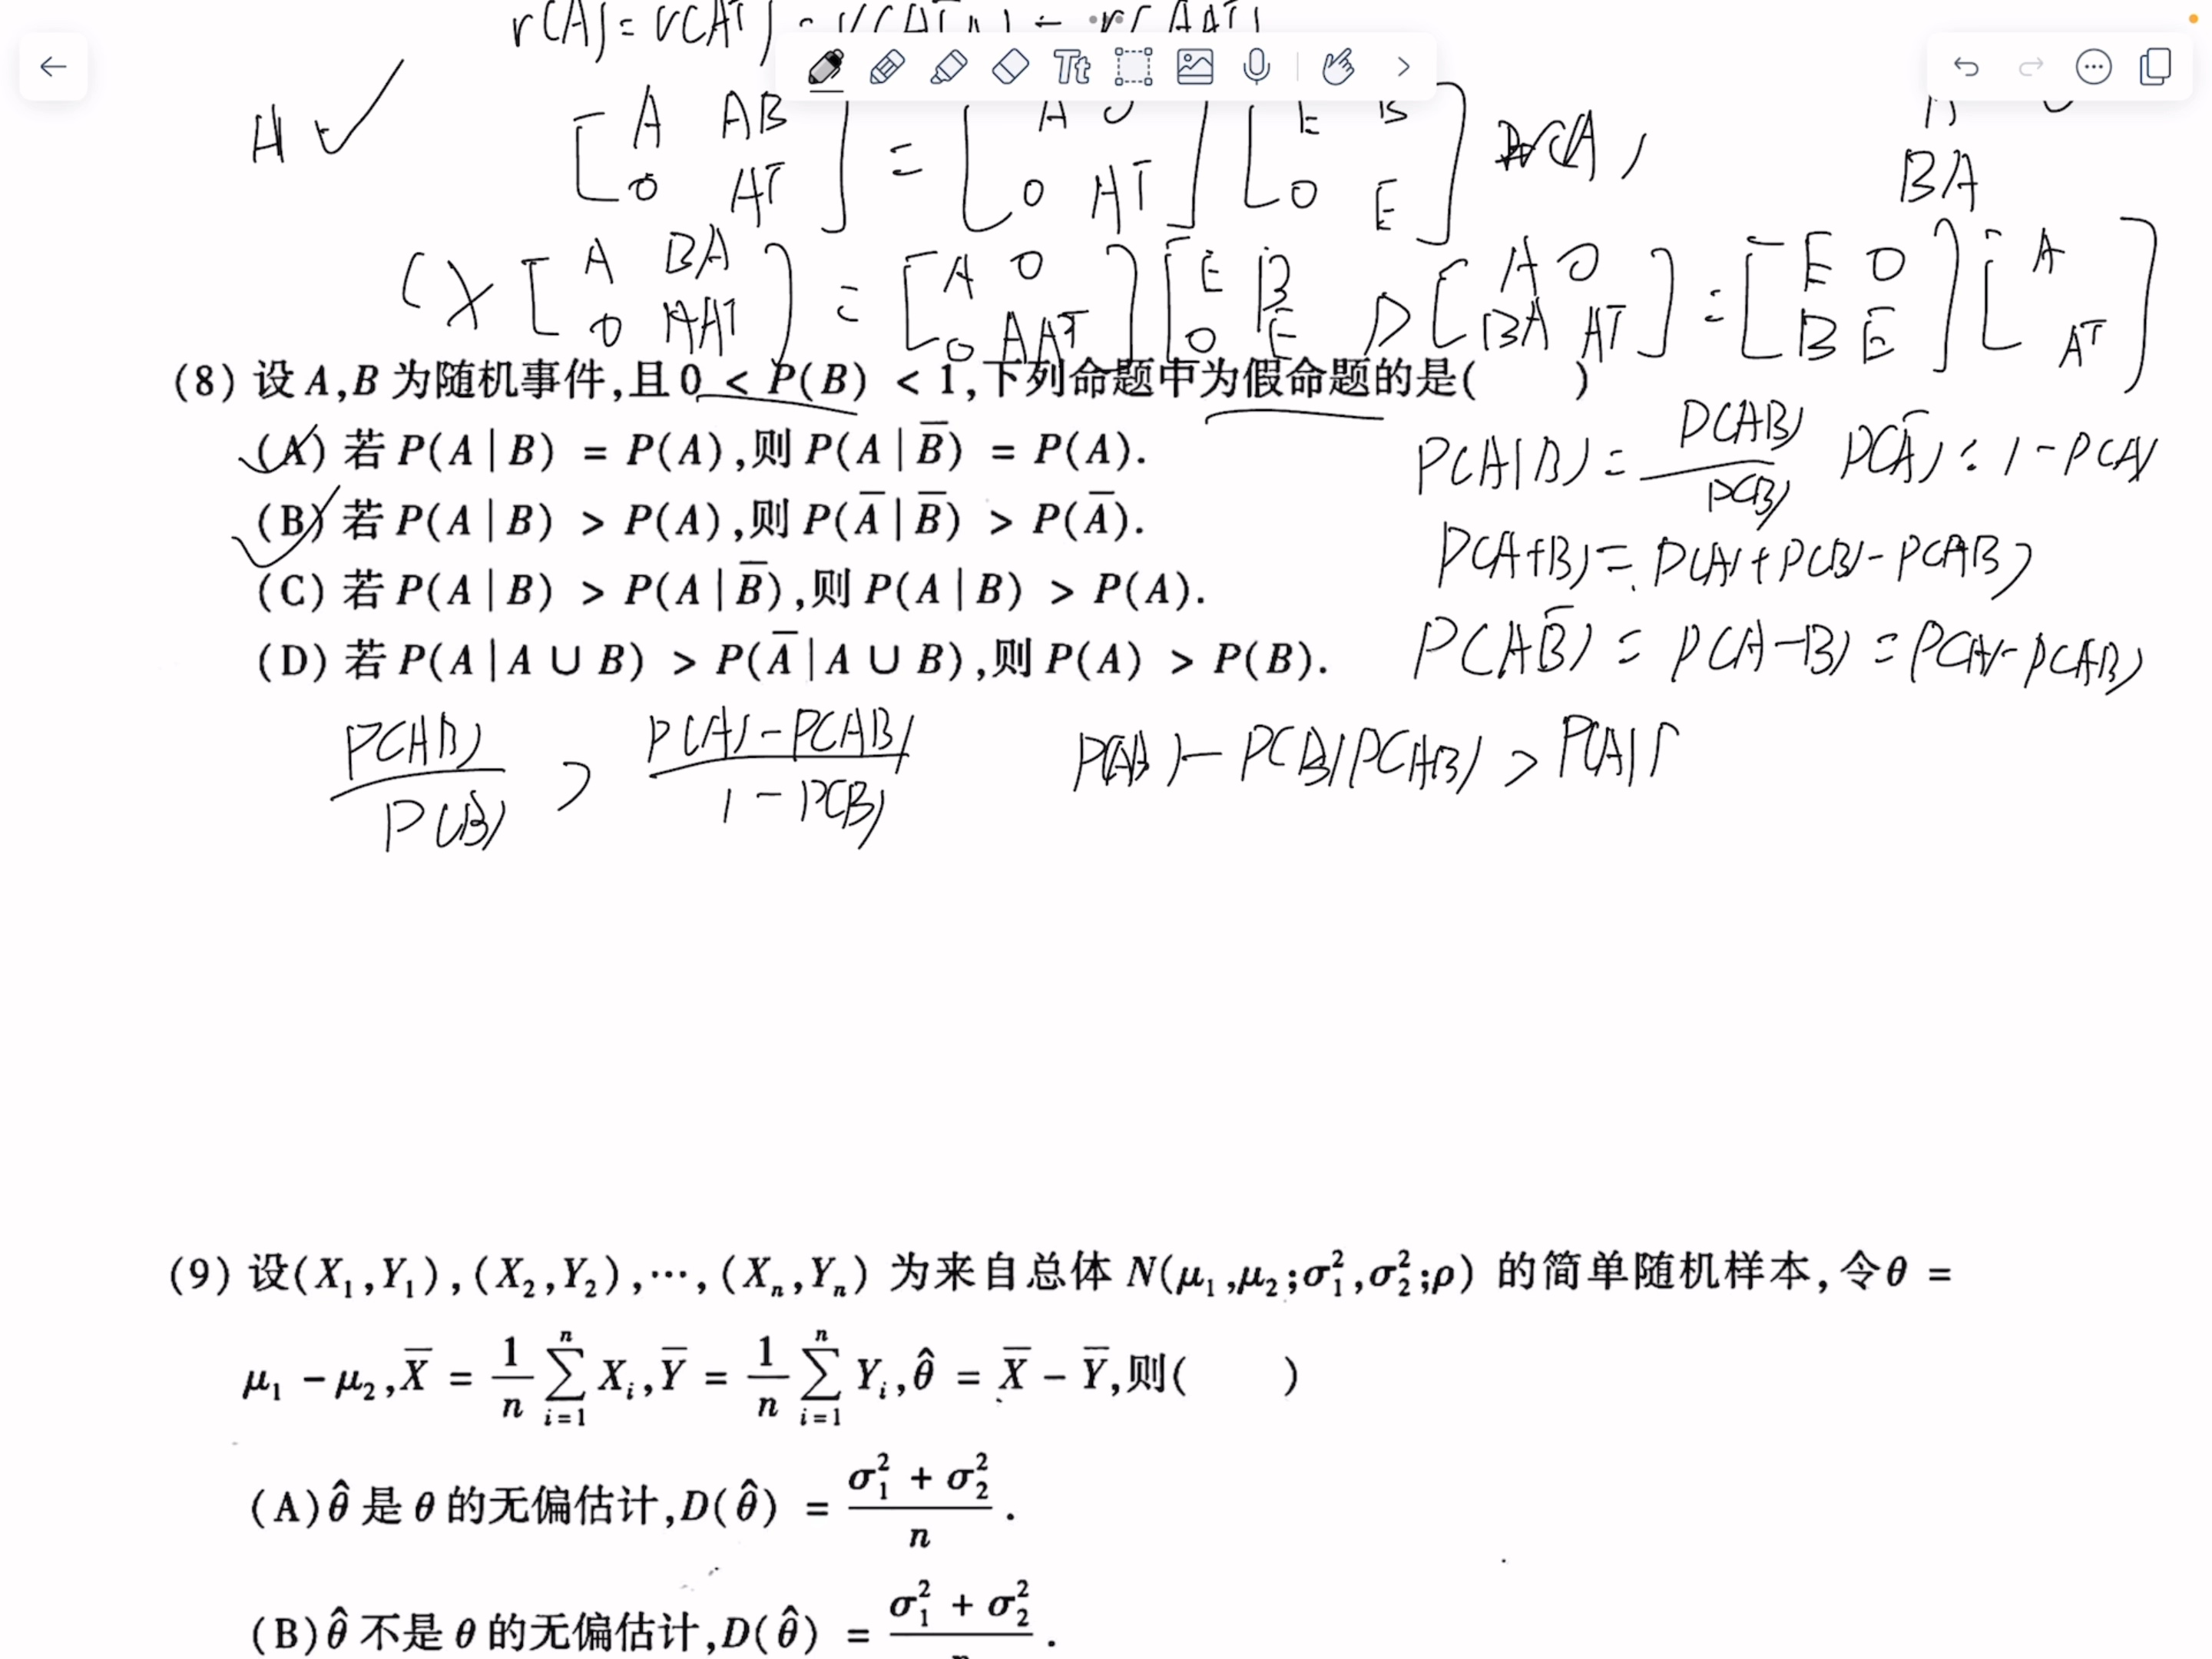 Tt
A AB = A 0 E B
0 AT 0 AT 0 E
BA
A BA = A 0 E B D A 0 = E 0 A
0 AAT 0 AAT 0 E BA AT B E AT
(8) 设 A,B 为随机事件,且 0 < P(B) < 1,下列命题中为假命题的是( )
(A) 若 P(A|B) = P(A),则 P(A|B̅) = P(A).
(B) 若 P(A|B) > P(A),则 P(A̅|B̅) > P(A̅).
(C) 若 P(A|B) > P(A|B̅),则 P(A|B) > P(A).
(D) 若 P(A|A∪B) > P(A̅|A∪B),则 P(A) > P(B).
P(A|B) = P(AB)/P(B) P(A̅) = 1-P(A)
P(A+B) = P(A)+P(B)-P(AB)
P(AB̅) = P(A-B) = P(A)-P(AB)
P(AB)/P(B) > (P(A)-P(AB))/(1-P(B)) P(AB)-P(B)P(AB) > P(A)
(9) 设(X₁,Y₁),(X₂,Y₂),⋯,(Xₙ,Yₙ) 为来自总体 N(μ₁,μ₂;σ₁²,σ₂²;ρ) 的简单随机样本,令θ =
μ₁ - μ₂, X̅ = 1/n ∑_{i=1}^{n} Xᵢ, Y̅ = 1/n ∑_{i=1}^{n} Yᵢ, θ̂ = X̅ - Y̅,则( )
(A) θ̂ 是 θ 的无偏估计,D(θ̂) = (σ₁² + σ₂²)/n.
(B) θ̂ 不是 θ 的无偏估计,D(θ̂) = (σ₁² + σ₂²)/n.